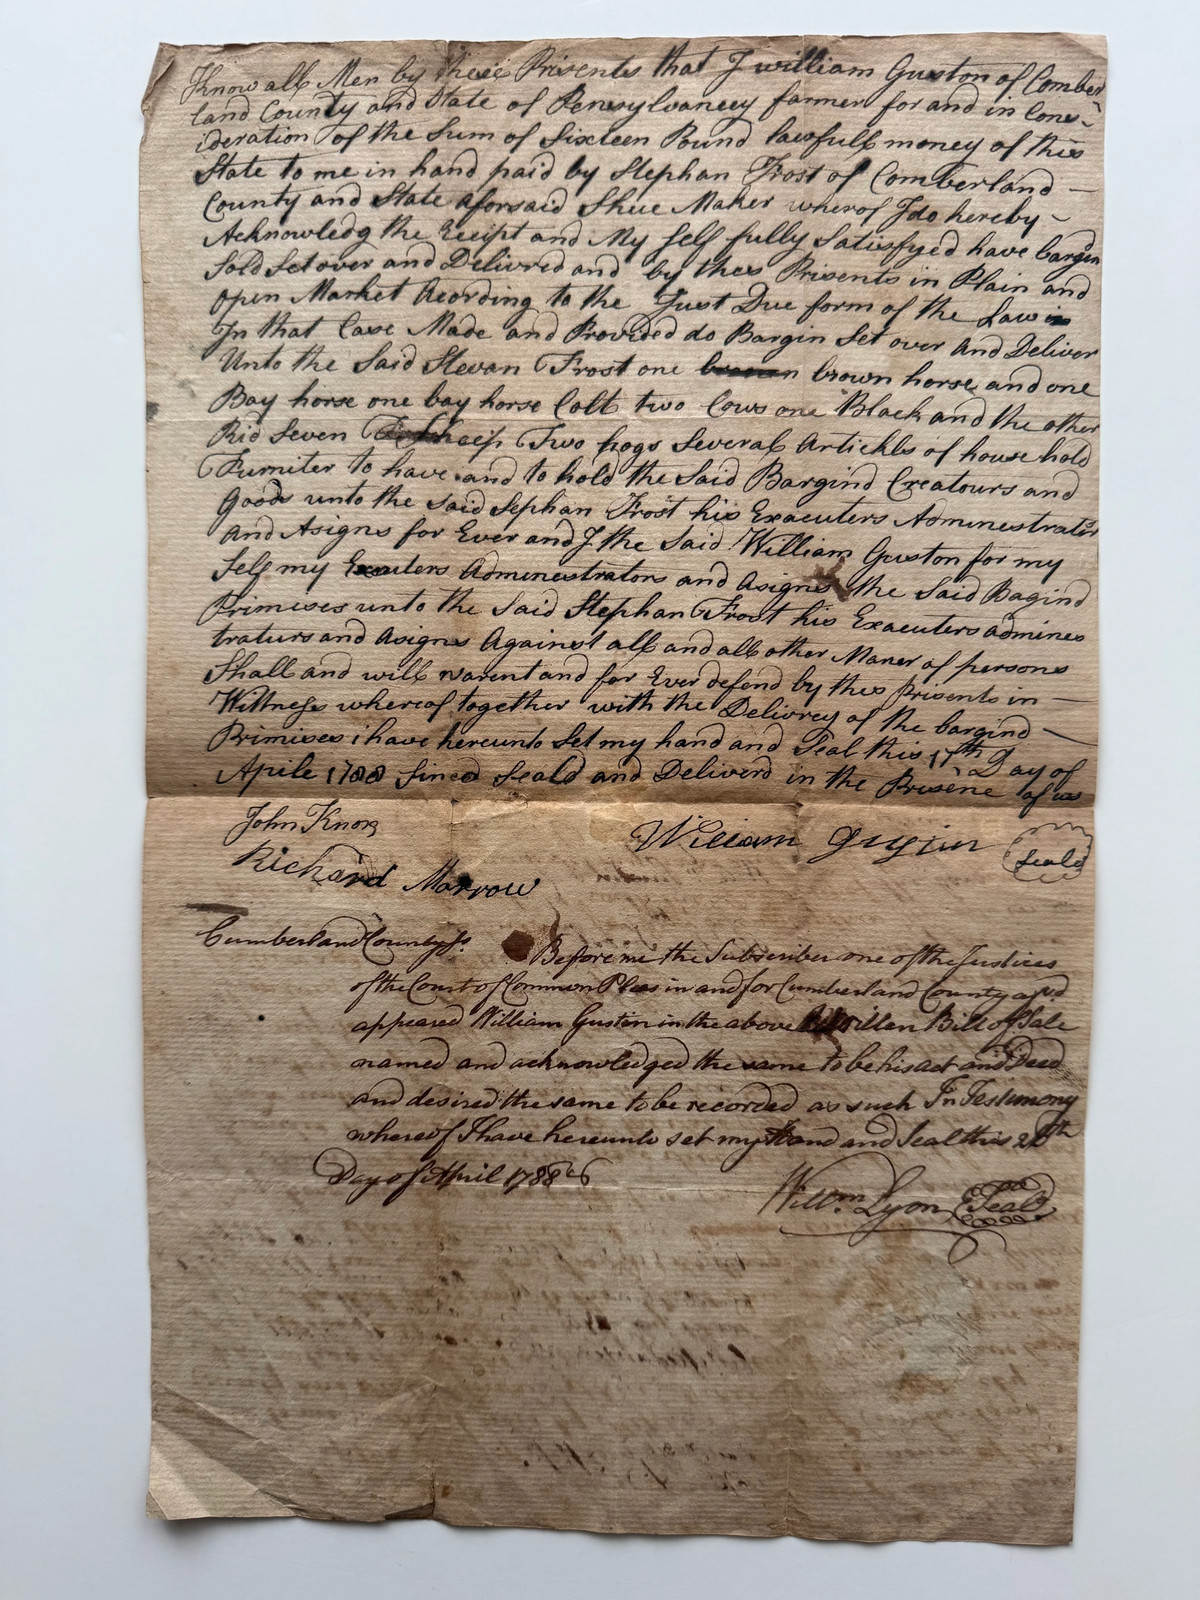 Know all Men by these Presents that I william Guston of Comber
land County and State of Pensylvaney farmer for and in Cons
ideration of the Sum of Sixteen Pound lawfull money of this
State to me in hand paid by Stephan Frost of Comberland
County and State aforsaid Shue Maker wherof I do hereby
Acknowledg the Receipt and My self fully Satisfyed have bargin
Sold Set over and Delivred and by thes Prisents in Plain and
Open Market Acording to the Just Due form of the Law
In that Case Made and Provided do Bargin Set over and Deliver
Unto the Said Stevan Frost one brown horse and one
Bay horse one bay horse Colt two Cows one Black and the other
Rid Seven Sheep Two hogs Several Artickls of house hold
Furniter to have and to hold the Said Bargind Creatours and
Goods unto the Said Sephan Frost his Exacuters Adminestrators
and Asigns for Ever and I the Said William Guston for my
Self my Exauters Adminestrators and Asigns the Said Bagind
Primises unto the Said Stephan Frost his Exacuters admines
traturs and Asigns Against all and all other Maner of persons
Shall and will warent and for Ever defend by thes Prisents in
Wittness whereof together with the Delivrey of the bargind
Primises i have hereunto Set my hand and Seal this 17th Day of
Aprile 1788 Sined Seald and Deliverd in the Prisene of us
John Knox
William Guston Seald
Richard Marrow
Cumberland County ss. Before me the Subscriber one of the Justices
of the Court of Common Pleas in and for Cumberland County
appeared William Guston in the above Written Bill of Sale
named and acknowledged the same to be his act and Deed
and desired the same to be recorded as such In Testimony
whereof I have hereunto set my Hand and Seal this
Day of April 1788
Willm Lyon Seal